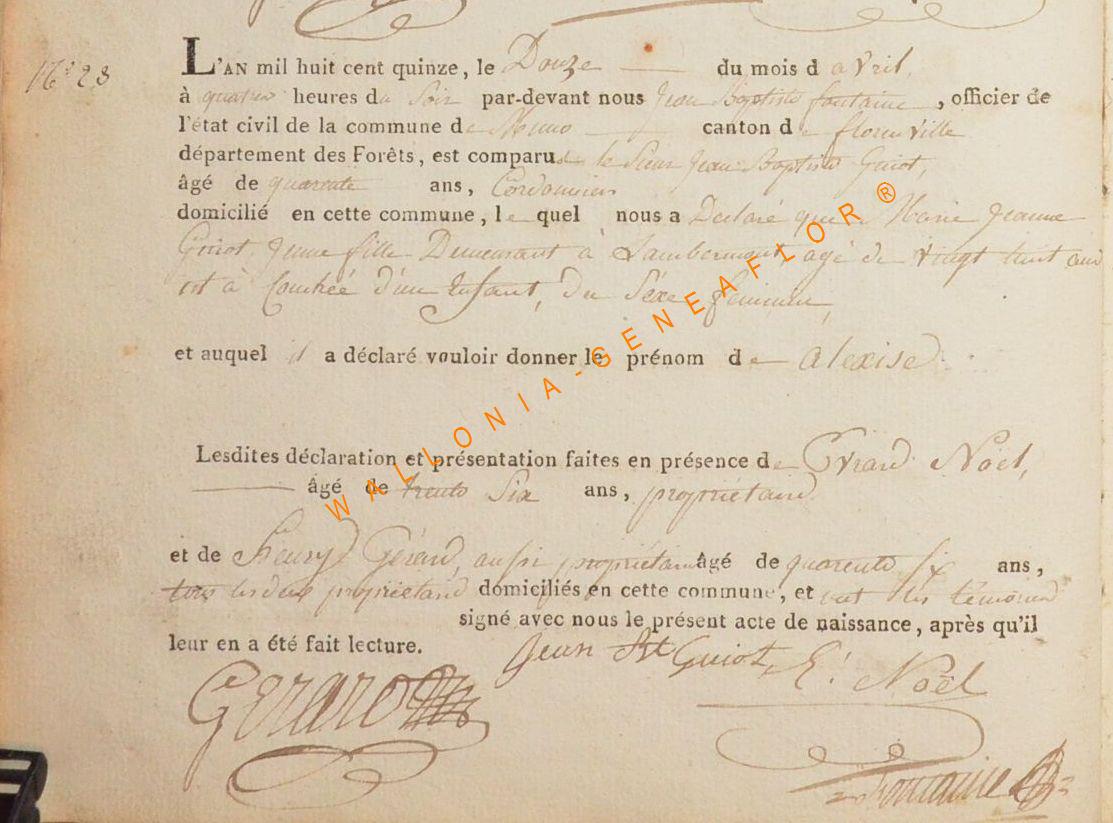 N° 28
L'AN mil huit cent quinze, le Douze du mois d avril
à quatre heures du Soir par-devant nous Jean Baptiste fontaine, officier de
l'état civil de la commune de Muno canton de florenville
département des Forêts, est comparu le Sieur Jean Baptiste Guiot,
âgé de quarente ans, Cordonnier
domicilié en cette commune, le quel nous a Declaré que Marie Jeanne
Guiot Jeune fille Demeurant à Lambermont, agé de vingt huit ans
est à Couchée d'un Enfant, du Séxe feminin,
et auquel il a déclaré vouloir donner le prénom de alexise
Lesdites déclaration et présentation faites en présence de Erard Noël,
âgé de trente Six ans, propriétaire
et de Henry Gérard, aussi propriétaire âgé de quarente six ans,
tous les deux propriétaires domiciliés en cette commune, et ont les témoins
signé avec nous le présent acte de naissance, après qu'il
leur en a été fait lecture.
Jean Bt Guiot, E! Noël
Gerard
fontaine
WALLONIA-GENEAFLOR®